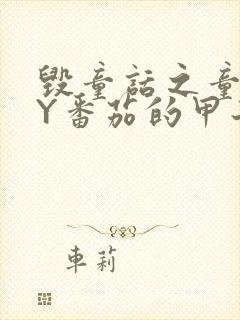 毁童话之童
Y番茄的甲
車莉